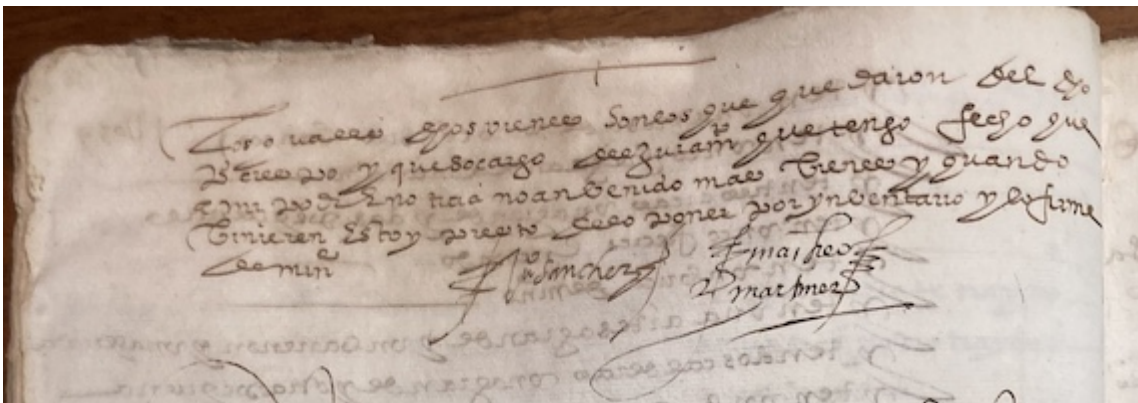 los quales dhos vienes son los que quedaron del dho
y que so cargo del juramto que tengo fecho que
a mi poder e notiçia no an benido mas bienes y quando
binieren estoy presto de los poner por ynbentario y lo firme
de mi ne
Sanchez matheo
martinez